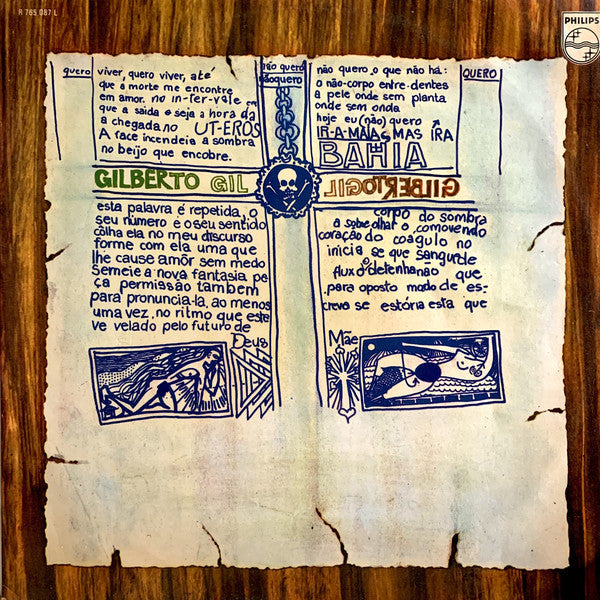 R 765 087 L
PHILIPS
quero
viver, quero viver, até
que a morte me encontre
em amor. no in-ter-vale em
que a saida e seja a hora da
a chegada no UT-EROS
A face incendeia a sombra
no beijo que encobre.
não quero
não quero
não quero o que não há:
o não-corpo entre-dentes
a pele onde sem planta
onde sem onda
hoje eu (não) quero
IR-A-MAIS MAS IRA
BAHIA
QUERO
GILBERTO GIL
GILBERTO GIL
esta palavra é repetida, o
seu número é o seu sentido
colha ela no meu discurso
forme com ela uma que
lhe cause amôr sem medo
Semeie a nova fantasia pe
ça permissão tambem
para pronuncia-la, ao menos
uma vez, no ritmo que este
ve velado pelo futuro de
Deus
corpo da sombra
a sobe olhar o comovendo
coração do coagulo no
inicia se que sangurde
fluxo detenha não que
para oposto modo de es-
creva se estória esta que
Mãe